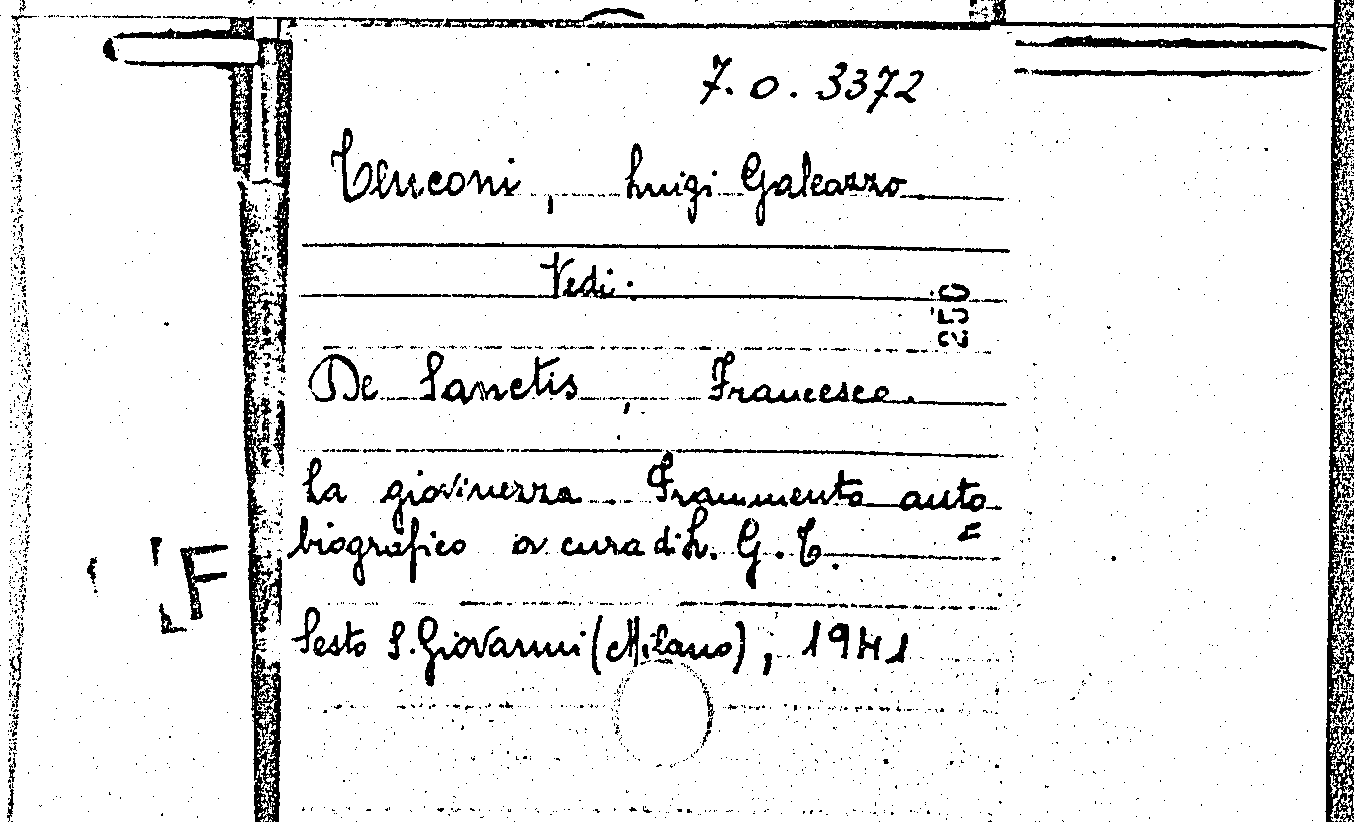 7. O. 3372
Tenconi, Luigi Galeazzo
Vedi:
250
De Sanctis, Francesco.
La giovinezza. Frammento auto=
biografico a cura di L. G. T.
Sesto S. Giovanni (Milano), 1941
F